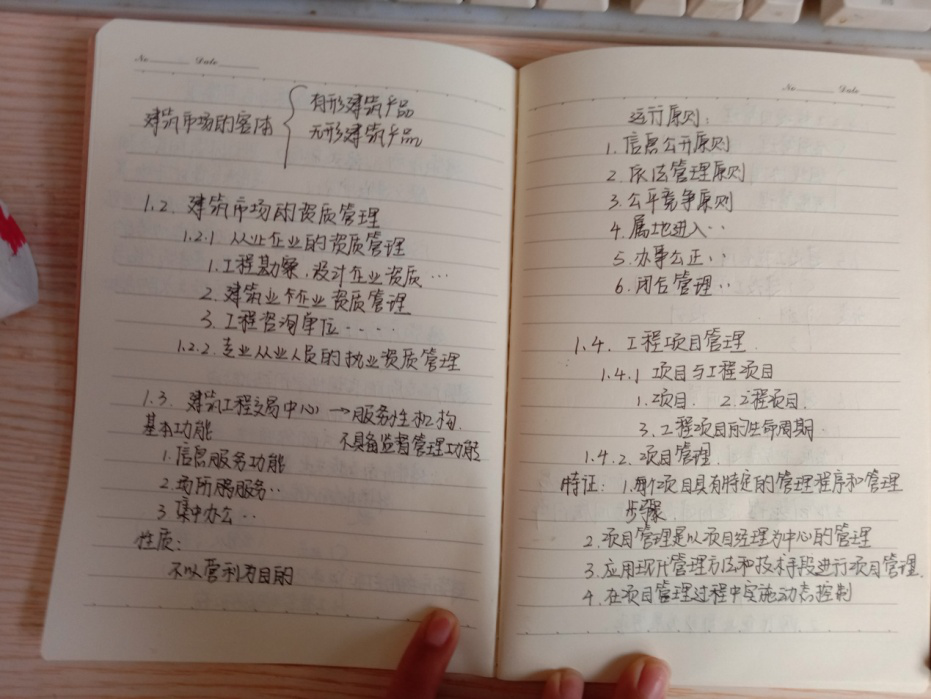 No. Date
建筑市场的客体
有形建筑产品
无形建筑产品
1.2. 建筑市场的资质管理
1.2.1 从业企业的资质管理
1.工程勘察,设计企业资质…
2.建筑业企业资质管理
3.工程咨询单位....
1.2.2.专业从业人员的执业资质管理
1.3. 建筑工程交易中心→服务性机构.
基本功能 不具备监督管理功能
1.信息服务功能
2.场所服务..
3 集中办公..
性质:
不以营利为目的
No. Date
运行原则:
1.信息公开原则
2.依法管理原则
3.公平竞争原则
4.属地进入..
5.办事公正..
6.闭合管理..
1.4. 工程项目管理.
1.4.1 项目与工程项目
1.项目. 2.工程项目.
3.工程项目的生命周期.
1.4.2.项目管理.
特征: 1.每个项目具有特定的管理程序和管理
步骤.
2.项目管理是以项目经理为中心的管理
3.应用现代管理方法和技术手段进行项目管理.
4.在项目管理过程中实施动态控制